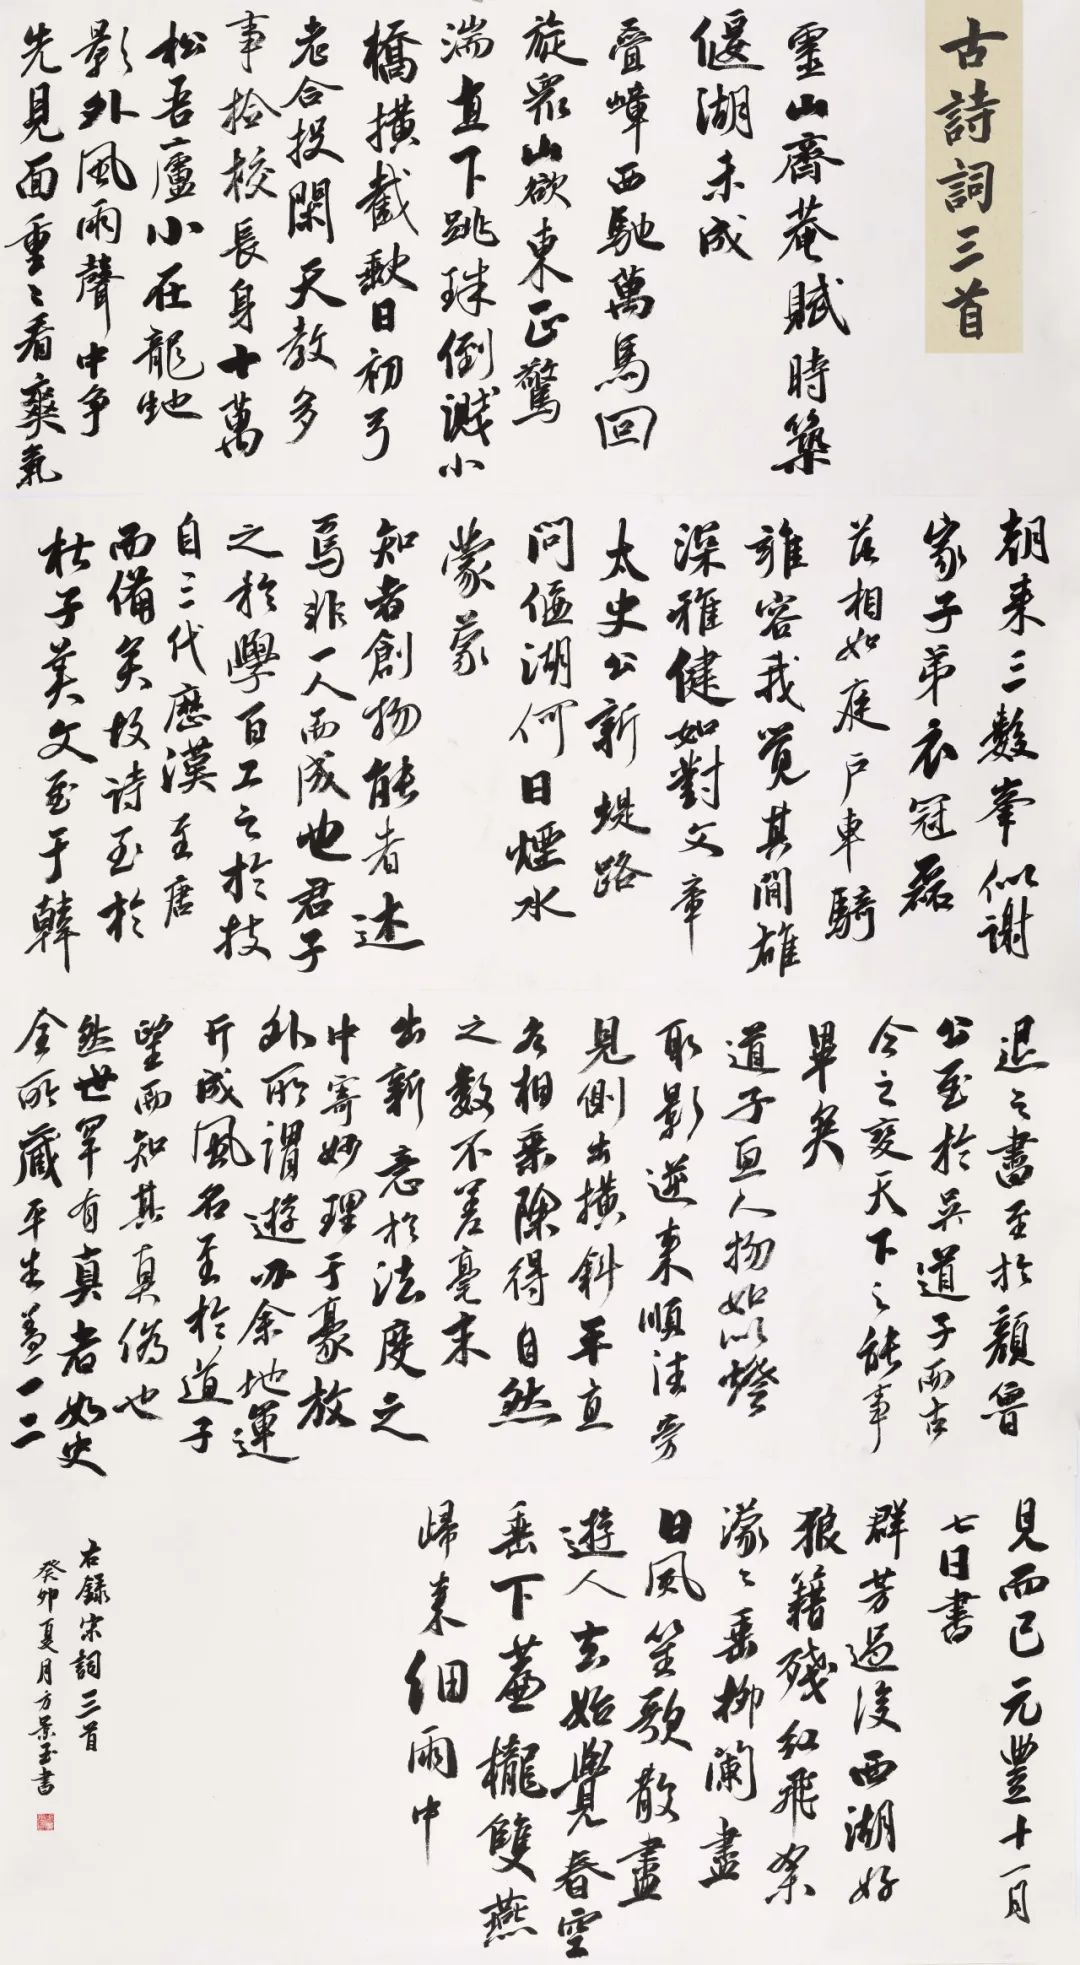 古詩詞三首
靈山齋菴賦時築
偃湖未成
疊嶂西馳萬馬回
旋眾山欲東正驚
湍直下跳珠倒濺小
橋橫截缺日初弓
老合投閑天教多
事檢校長身十萬
松吾廬小在龍蛇
影外風雨聲中爭
先見面重〻看爽氣
朝來三數峯似謝
家子弟衣冠磊
落相如庭戶車騎
雍容我覺其間雄
深雅健如對文章
太史公新堤路
問偃湖何日煙水
濛濛
知者創物能者述
焉非一人而成也君子
之於學百工之於技
自三代歷漢至唐
而備矣故詩至於
杜子美文至于韓
退之書至於顏魯
公至於吳道子而古
今之變天下之能事
畢矣
道子畫人物如以燈
取影逆來順往旁
見側出橫斜平直
各相乘除得自然
之數不差毫末
出新意於法度之
中寄妙理于豪放
外所謂遊刃余地運
斤成風名至於道子
望而知其真偽也
然世罕有真者如史
全所藏平生蓋一二
見而已元豐十一月
七日書
群芳過後西湖好
狼籍殘紅飛絮
濛〻垂柳闌盡
日風笙歌散盡
遊人去始覺春空
垂下簾櫳雙燕
歸來細雨中
右錄宋詞三首
癸卯夏月方景玉書